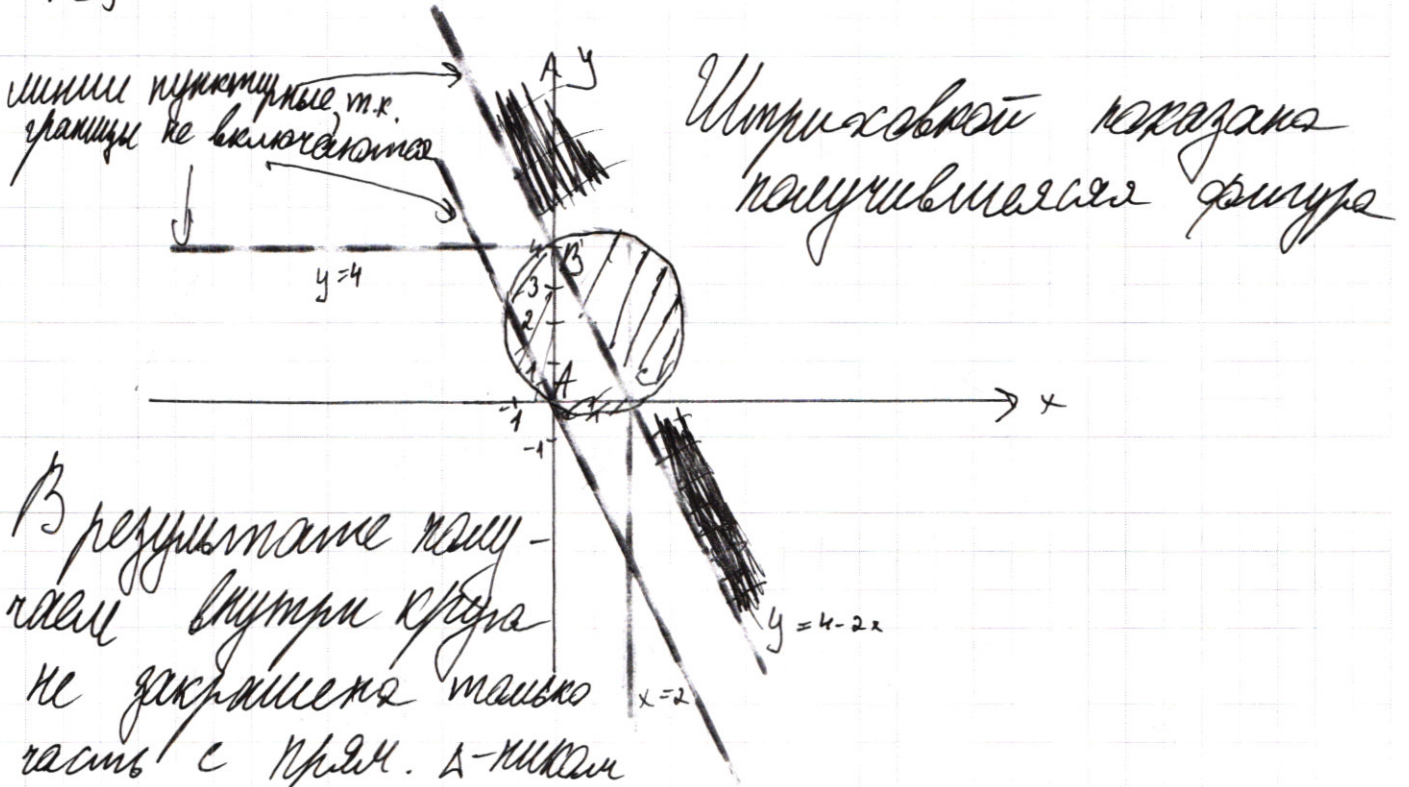 линии пунктирные, т.к.
границы не включаются
A y
Штриховкой показана
получившаяся фигура
y=4
4
B
3
2
1
A
C
-1
1
x
-1
В результате полу-
чаем внутри круга
не закрашена только
часть с прям. Δ-ником
y = 4-2x
x=2